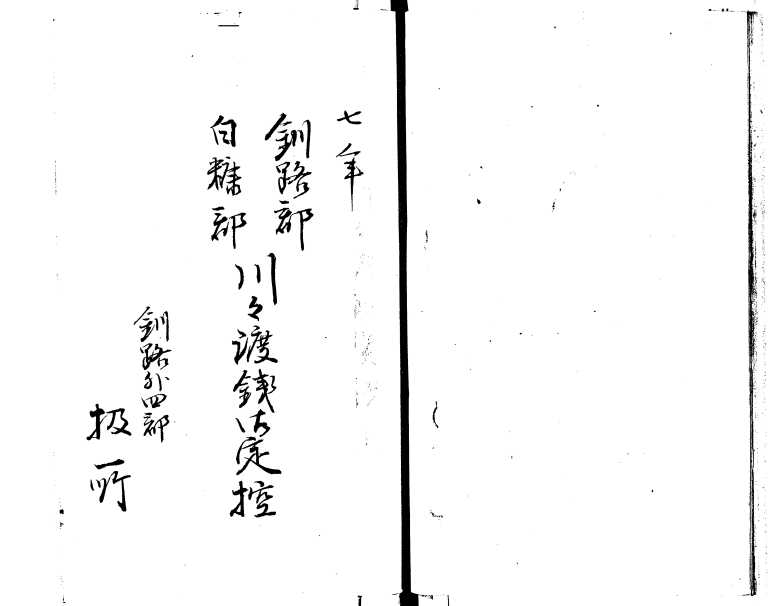 七年
釧路郡
白糠郡
川々渡銭御定控
釧路外四郡
扱所